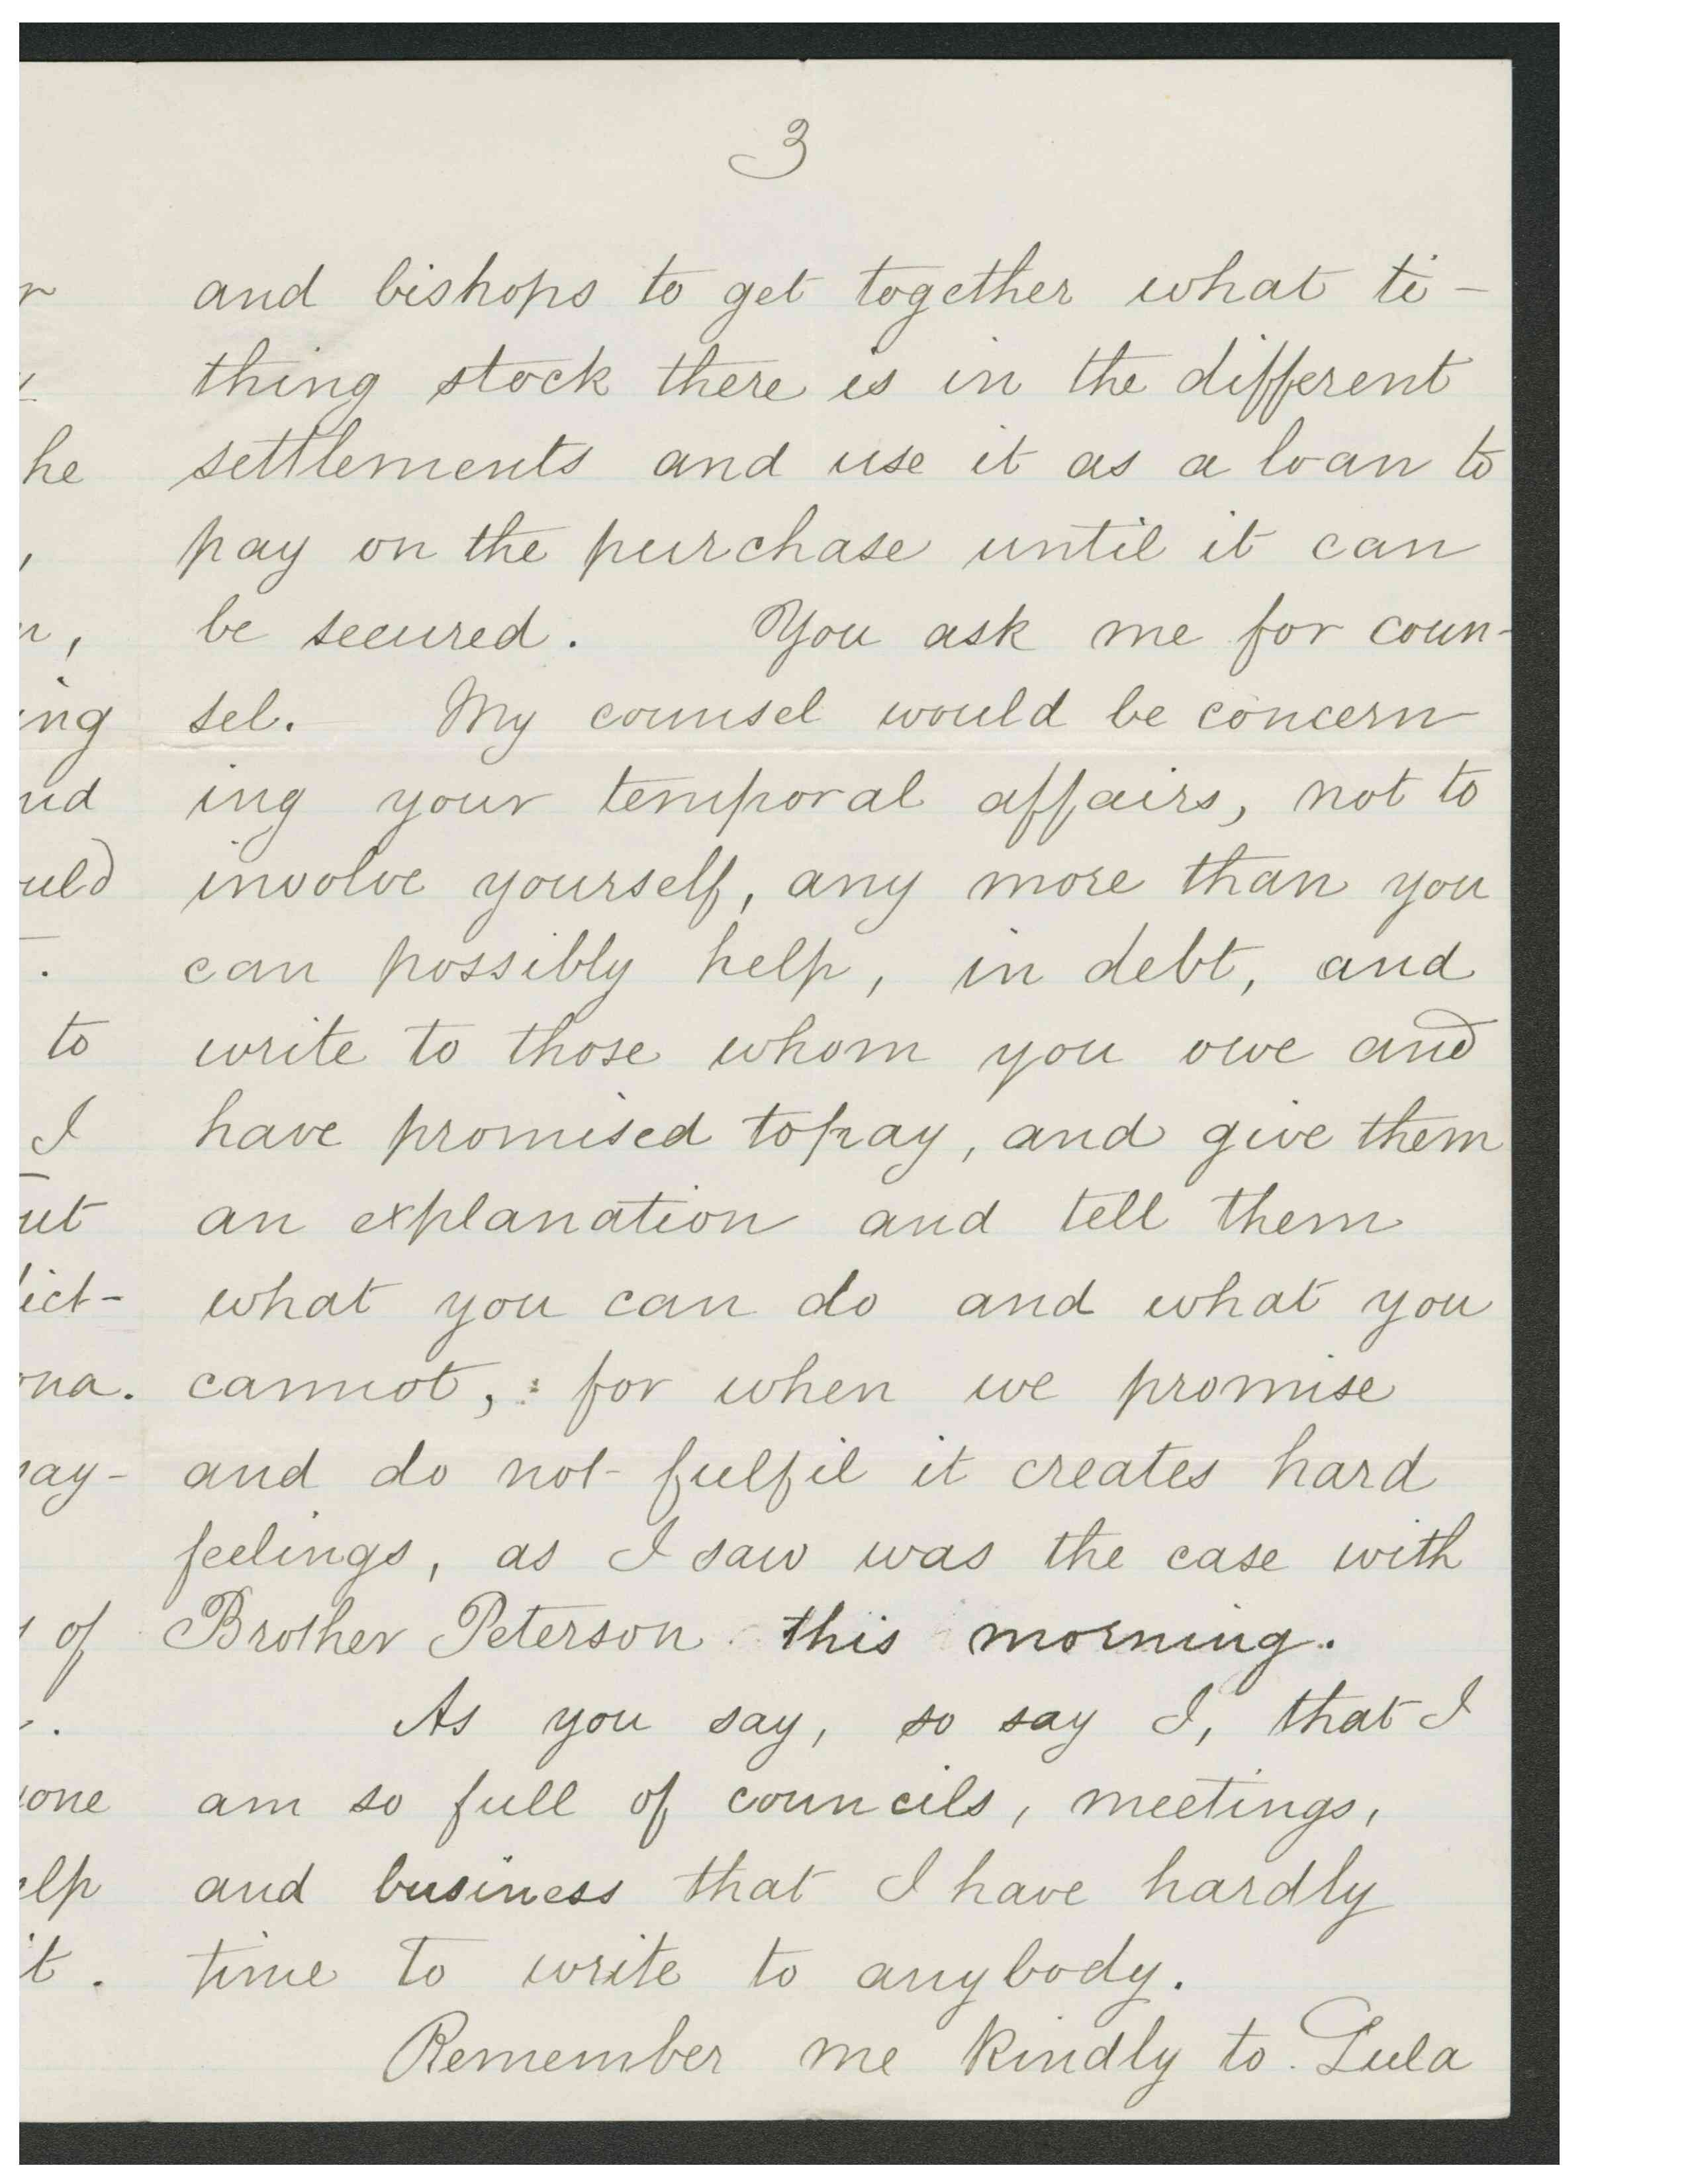 3
and bishops to get together what ti-
thing stock there is in the different
settlements and use it as a loan to
pay on the purchase until it can
be secured. You ask me for coun-
sel. My counsel would be concern
ing your temporal affairs, not to
involve yourself, any more than you
can possibly help, in debt, and
write to those whom you owe and
have promised to pay, and give them
an explanation and tell them
what you can do and what you
cannot, : for when we promise
and do not fulfil it creates hard
feelings, as I saw was the case with
Brother Peterson this morning.
As you say, so say I, that I
am so full of councils, meetings,
and business that I have hardly
time to write to anybody.
Remember me kindly to Lula
he
n,
ing
nd
uld
.
to
I
ut
ict-
ona.
pay-
of
.
one
elp
it.